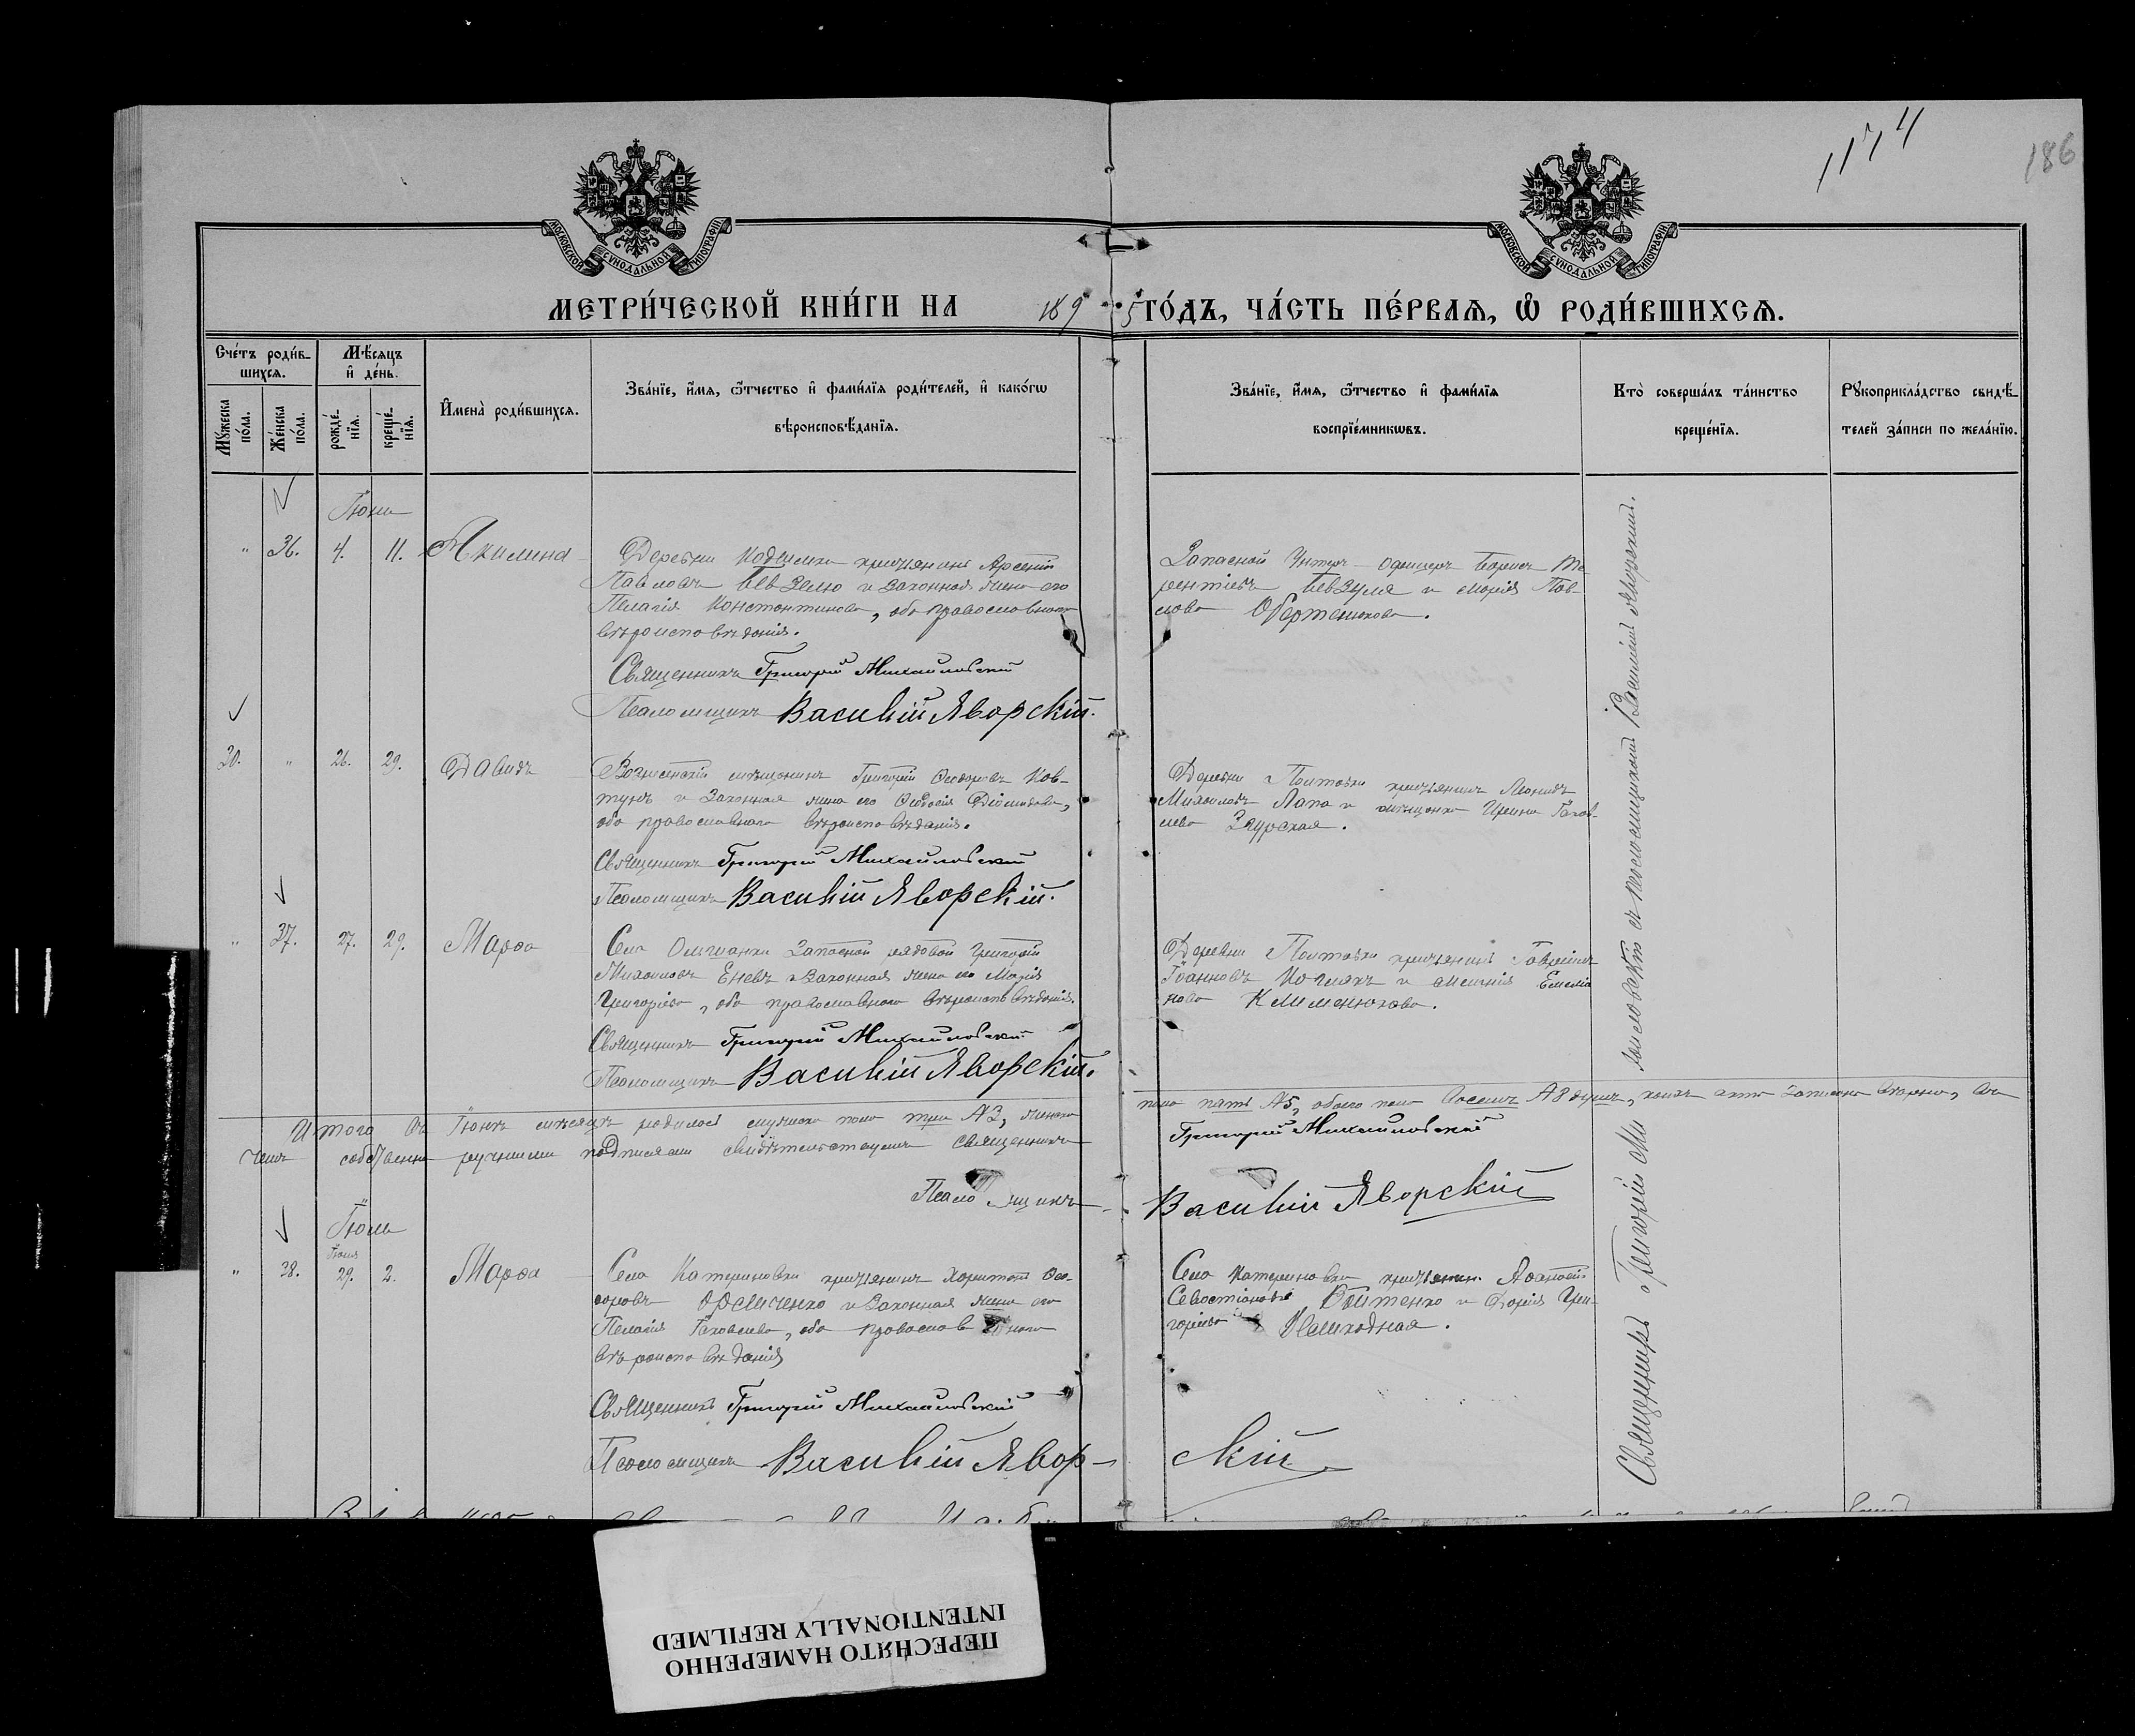 1174
186
МОСКОВСКОЙ СѴНОДАЛЬНОЙ ТИПОГРАФІИ.
МОСКОВСКОЙ СѴНОДАЛЬНОЙ ТИПОГРАФІИ.
МЕТРИ́ЧЕСКОЙ КНИ́ГИ НА 1895 ГО́ДЪ, ЧА́СТЬ ПЕ́РВАѦ, Ѽ РОДИ́ВШИХСѦ.
Сче́тъ роди́в-
шихсѧ.
Мѣ́сѧцъ
и҆ де́нь.
Мꙋ́жеска
по́ла.
Же́нска
по́ла.
рожде́-
нїѧ.
креще́-
нїѧ.
И҆мена̀ роди́вшихсѧ.
Зва́нїе, и҆́мѧ, ѻ҆́тчество и҆ фами́лїѧ роди́телей, и҆ како́гѡ
вѣроисповѣ́данїѧ.
Зва́нїе, и҆́мѧ, ѻ҆́тчество и҆ фами́лїѧ
воспрїе́мникѡвъ.
Кто̀ соверша́лъ та́инство
креще́нїѧ.
Рꙋкоприкла́дство свидѣ́-
телей за́писи по жела́нїю.
Іюнь
" 36. 4. 11. Акилина
Деревни крестьянинъ Арсеній
Павловъ Бевзело и законная жена его
Пелагія Константинова, оба православнаго
вѣроисповѣданія.
Священникъ Григорій Михайловскій
Псаломщикъ Василій Яворскій.
Запасной Унтеръ-офицеръ Борисъ Те
рентіевъ Бевзуля и Марія Пав-
лова Обертенюкова.
30. " 26. 29. Давидъ
Вознесенскій мѣщанинъ Григорій Ѳеодоровъ Ков-
тунъ и законная жена его Ѳеодосія Діомидова,
оба православнаго вѣроисповѣданія.
Священникъ Григорій Михайловскій
Псаломщикъ Василій Яворскій.
Деревни Полтавки крестьянинъ Леонидъ
Михаиловъ Лапа и мѣщанка Ирина Іаков-
лева Загурская.
" 37. 27. 29. Марѳа
Села Ольшанки Запасной рядовой Григорій
Михаиловъ Еневъ и законная жена его Марія
Григоріева, оба православнаго вѣроисповѣданія.
Священникъ Григорій Михайловскій
Псаломщикъ Василій Яворскій.
Деревни Полтавки крестьянинъ Гавріилъ
Іоанновъ и Емеліа
нова Клименюкова.
Итого въ Іюнѣ мѣсяцѣ родилось мужска пола три №3, женска пола пять №5, обоего пола восемь №8 душъ, коихъ акты записаны вѣрно, въ
чемъ собственноручными подписями свидѣтельствуемъ Священникъ Григорій Михайловскій
Псаломщикъ Василій Яворскій
Іюль
Іюня
" 38. 29. 2. Марѳа
Села Катериновки крестьянинъ Харитонъ Ѳео-
доровъ и законная жена его
Пелагія Іаковлева, оба православнаго
вѣроисповѣданія
Священникъ Григорій Михайловскій
Псаломщикъ Василій Яворскій
Села Катериновки крестьянин. Аѳанасій
Севастіановъ Войтенко и Дарія Гри-
горіева
Священникъ Григорій Михайловскій съ псаломщикомъ Василіемъ Яворскимъ.
ПЕРЕСНЯТО НАМЕРЕННО
INTENTIONALLY REFILMED